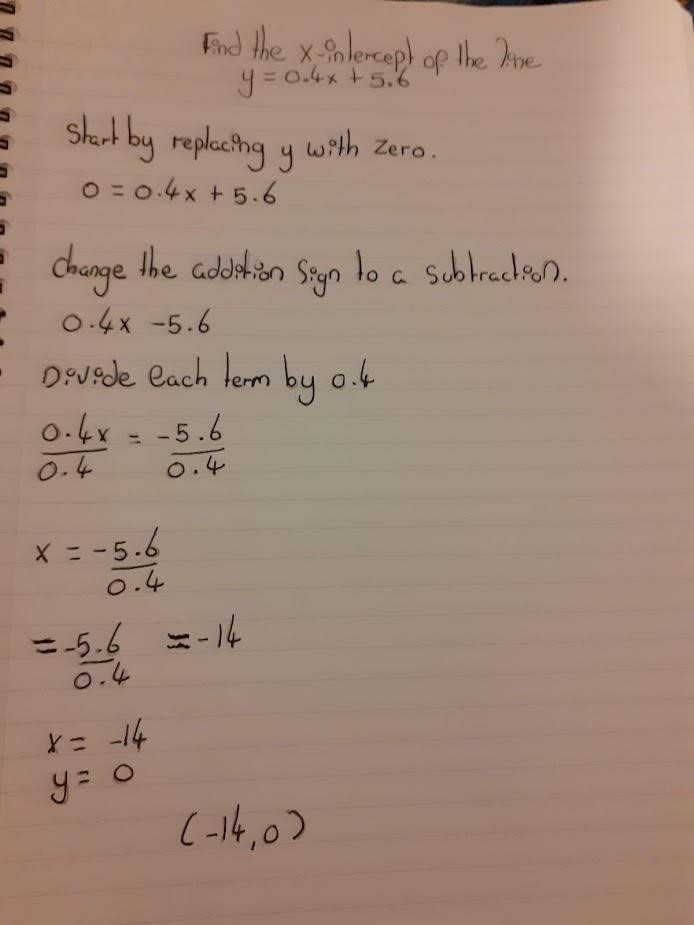 Find the x-intercept of the line
y = 0.4x + 5.6
Start by replacing y with zero.
0 = 0.4x + 5.6
Change the addition sign to a subtraction.
0.4x -5.6
Divide each term by 0.4
0.4x/0.4 = -5.6/0.4
x = -5.6/0.4
= -5.6/0.4 = -14
x = -14
y = 0
(-14,0)